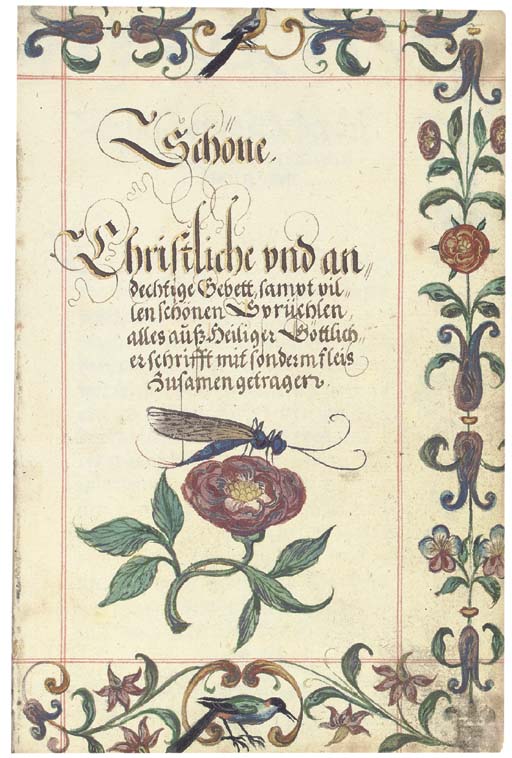 Schöne.
Christliche vnd an⸗
dechtige Gebett, sampt vil⸗
len schönen Sprüchlen,
alles auß Heiliger Göttlich⸗
er schrifft mit sonderm fleis
Zusamen getragen.